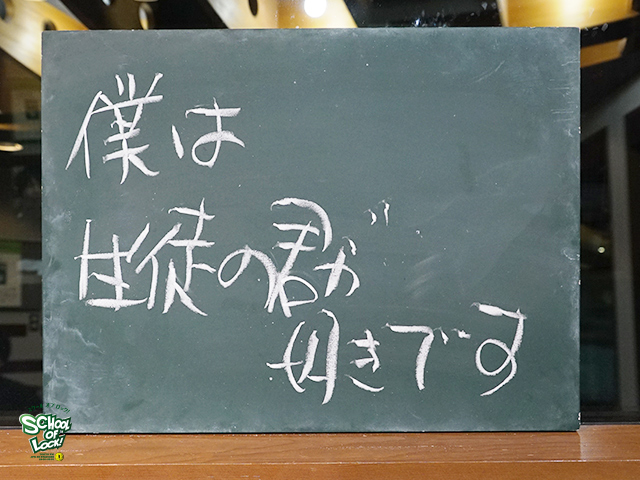 僕は
生徒の君が
好きです
SCHOOL
OF
LOCK!